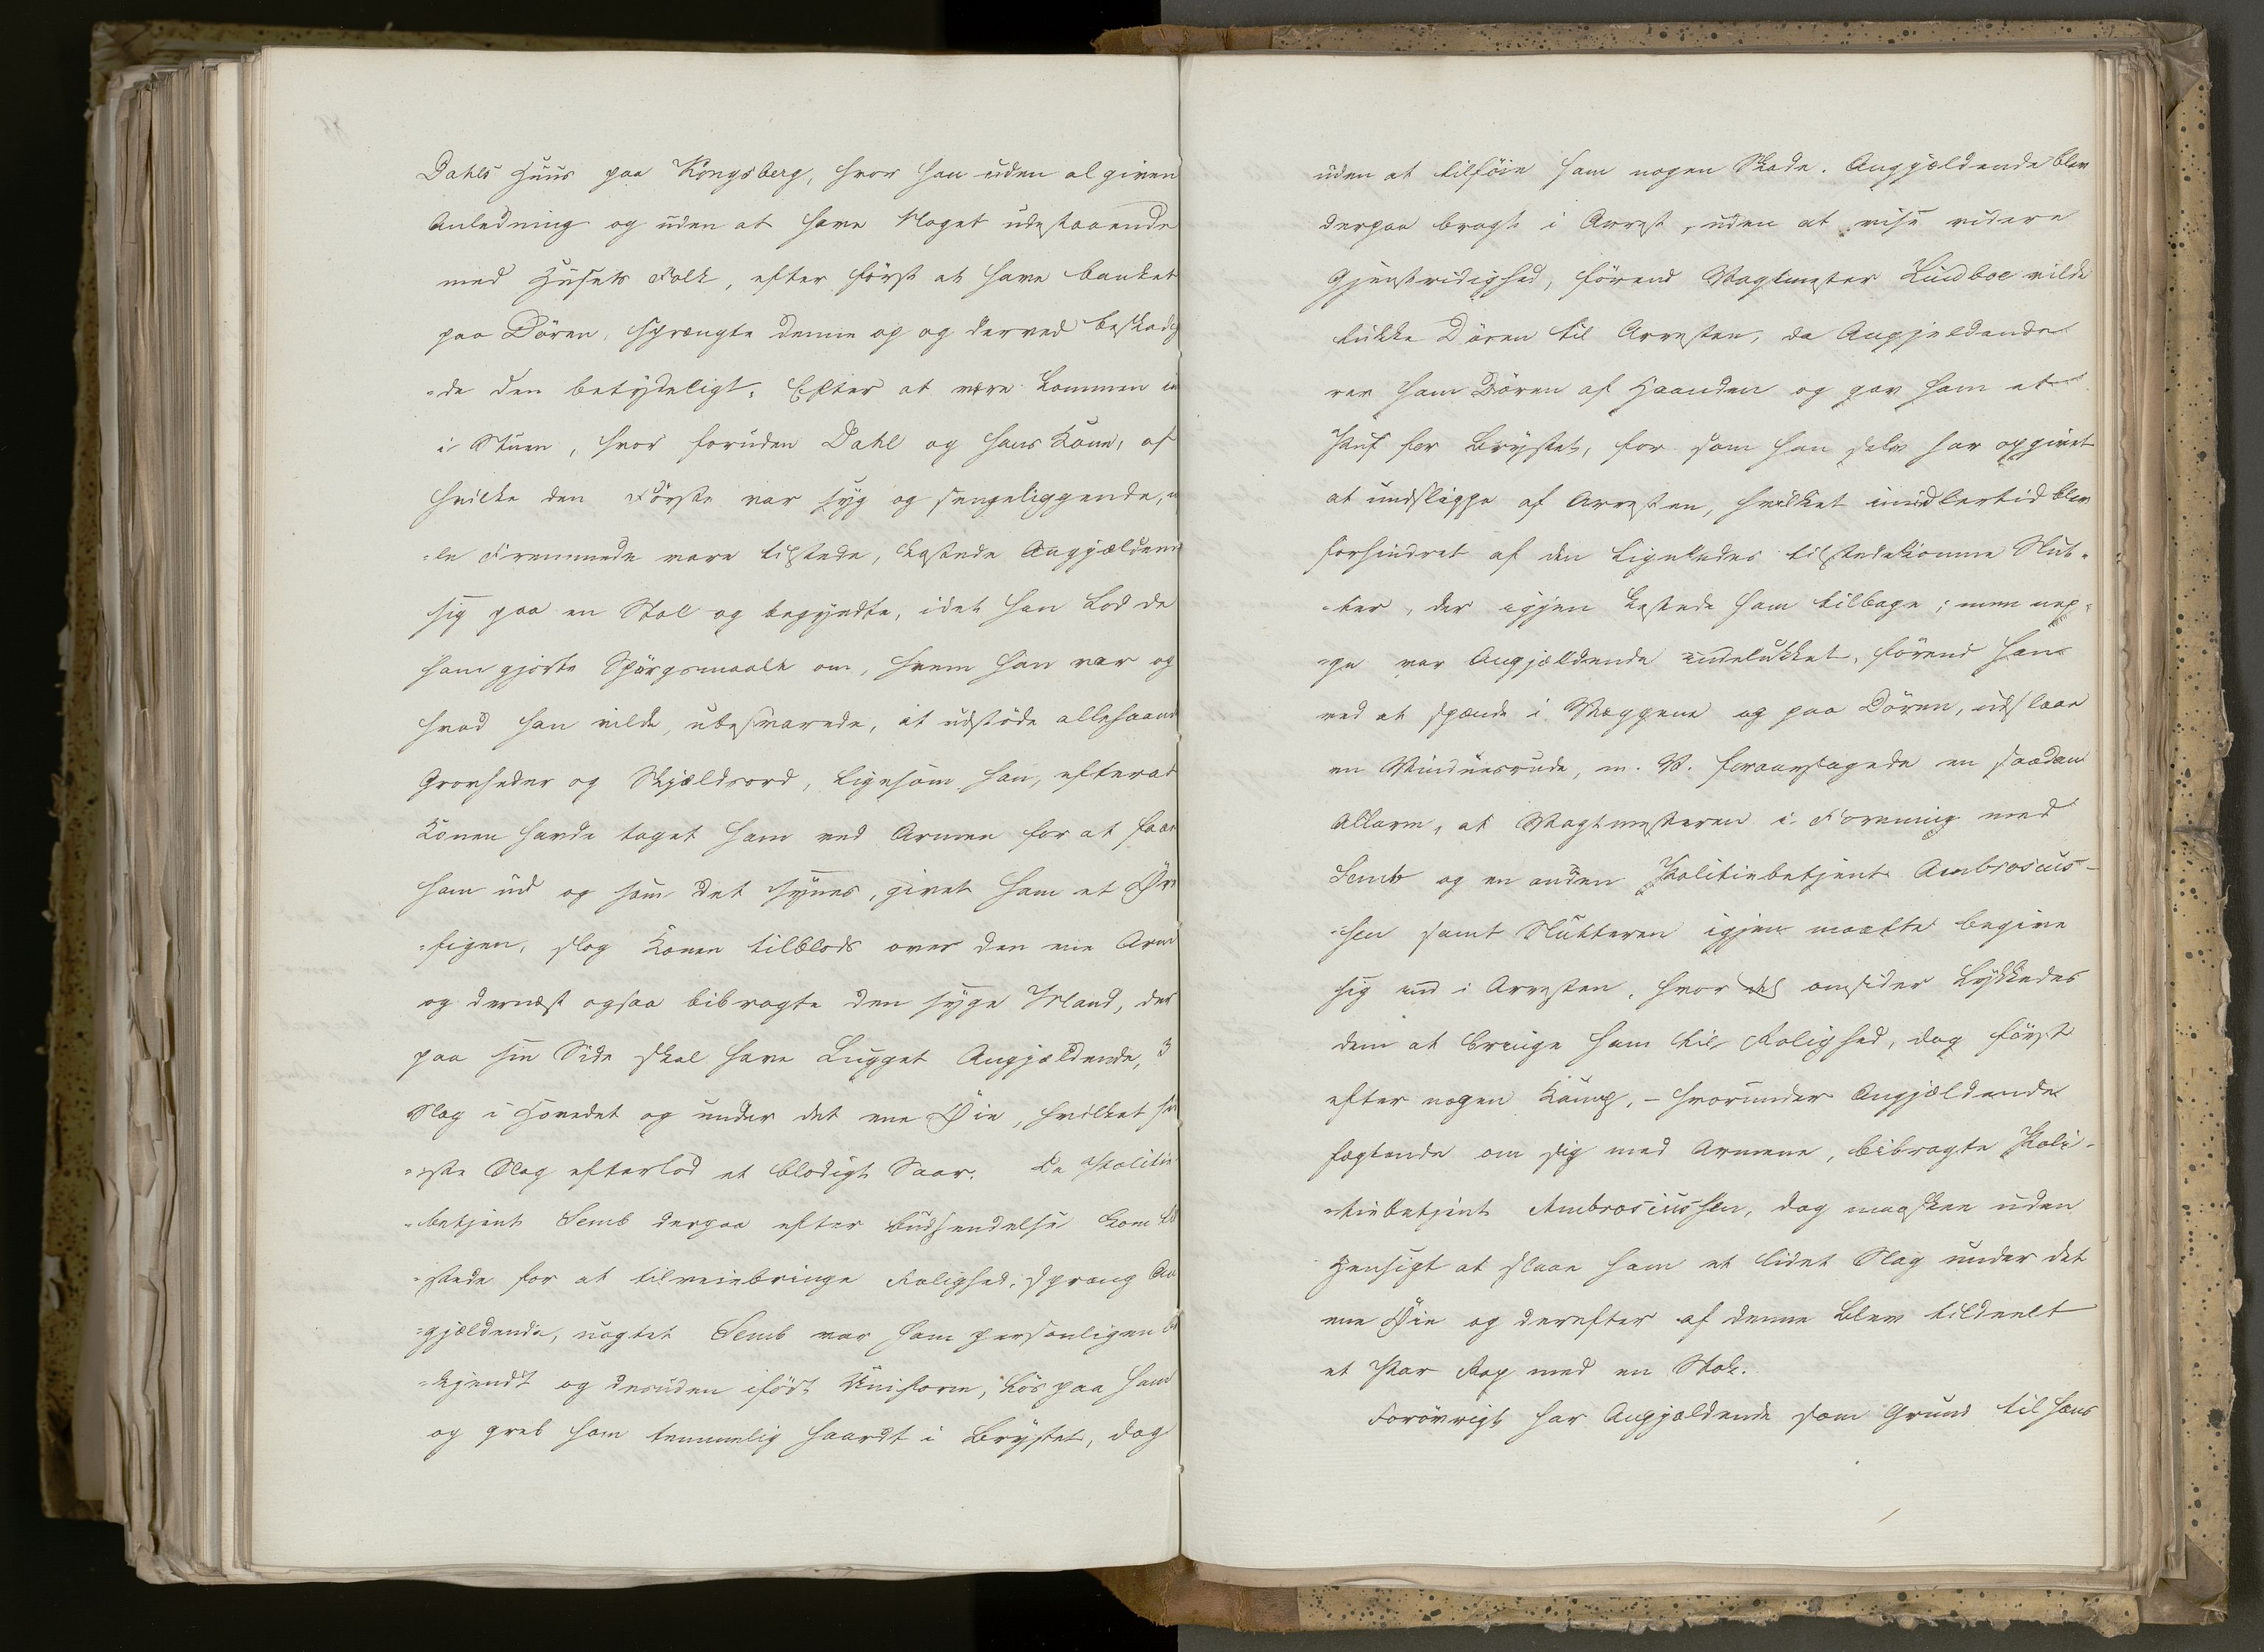 Dahls Huus paa Kongsberg, hvor han uden al given
Anledning og uden at have Noget udestaaende
med Husets Folk, efter først at have banket
paa Dören, sprængte denne op og derved beskadig
=de den betydeligt. Efter at være kommen ind
i Stuen, hvor foruden Dahl og hans Kone, af
hvilke den Förste var syg og sengeliggende,
=le Fremmede vare tilstede, kastede Angjældende
sig paa en Stol og begyndte, idet han lod de
ham gjorte Spörgsmaale om, hvem han var og
hvad han vilde, ubesvarede, at udstöde allehaande
Grovheder og Skjældsord, ligesom han, efterat
Konen havde taget ham ved Armen for at faae
ham ud og som det synes, givet ham et Øre
=figen, slog Konen tilblods over den ene Arm
og dernæst ogsaa bibragte den syge Mand, der
paa sin Side skal have lugget Angjældende, 3
Slag i Hovedet og under det ene Øie, hvilket si
=ste Slag efterlod et blodigt Saar. Da Politie
=betjent Semb derpaa efter Budsendelse kom til
=stede for at tilveiebringe Rolighed, sprang An
=gjældende, uagtet Semb var ham personligen be
=kjendt og desuden iført Uniform, løs paa ham
og greb ham temmelig haardt i Brystet, dog
uden at tilföie ham nogen Skade. Angjældende blev
derpaa bragt i Arrest, uden at vise videre
Gjenstridighed, förend Vagtmester Lindboe vilde
lukke Dören til Arresten, da Angjeldende
rev ham Dören af Haanden og gav ham et
Puf for Brystet, for som han selv har opgivet
at undslippe af Arresten, hvilket imidlertid blev
forhindret af den ligeledes tilstedekomne Slut=
=ter, der igjen kastede ham tilbage; men nep=
=pe var Angjældende indelukket, förend han
ved at spænde i Væggene og paa Dören, udslaae
en Vinduesrude, m. V. foraarsagede en saadan
Allarm, at Vagtmesteren i Forening med
Semb og en anden Politiebetjent Ambrosius=
=sen samt Slutteren igjen maatte begive
sig ind i Arresten, hvor det omsider lykkedes
dem at bringe ham til Rolighed, dog först
efter nogen Kamp, - hvorunder Angjældende
fægtende om sig med Armene, bibragte Poli=
=tiebetjent Ambrosiussen, dog maaskee uden
Hensigt at slaae ham et lidet Slag under det
ene Øie og derefter af denne blev tildeelt
et Par Rap med en Stok.
Forövrigt har Angjældende som Grund til hans